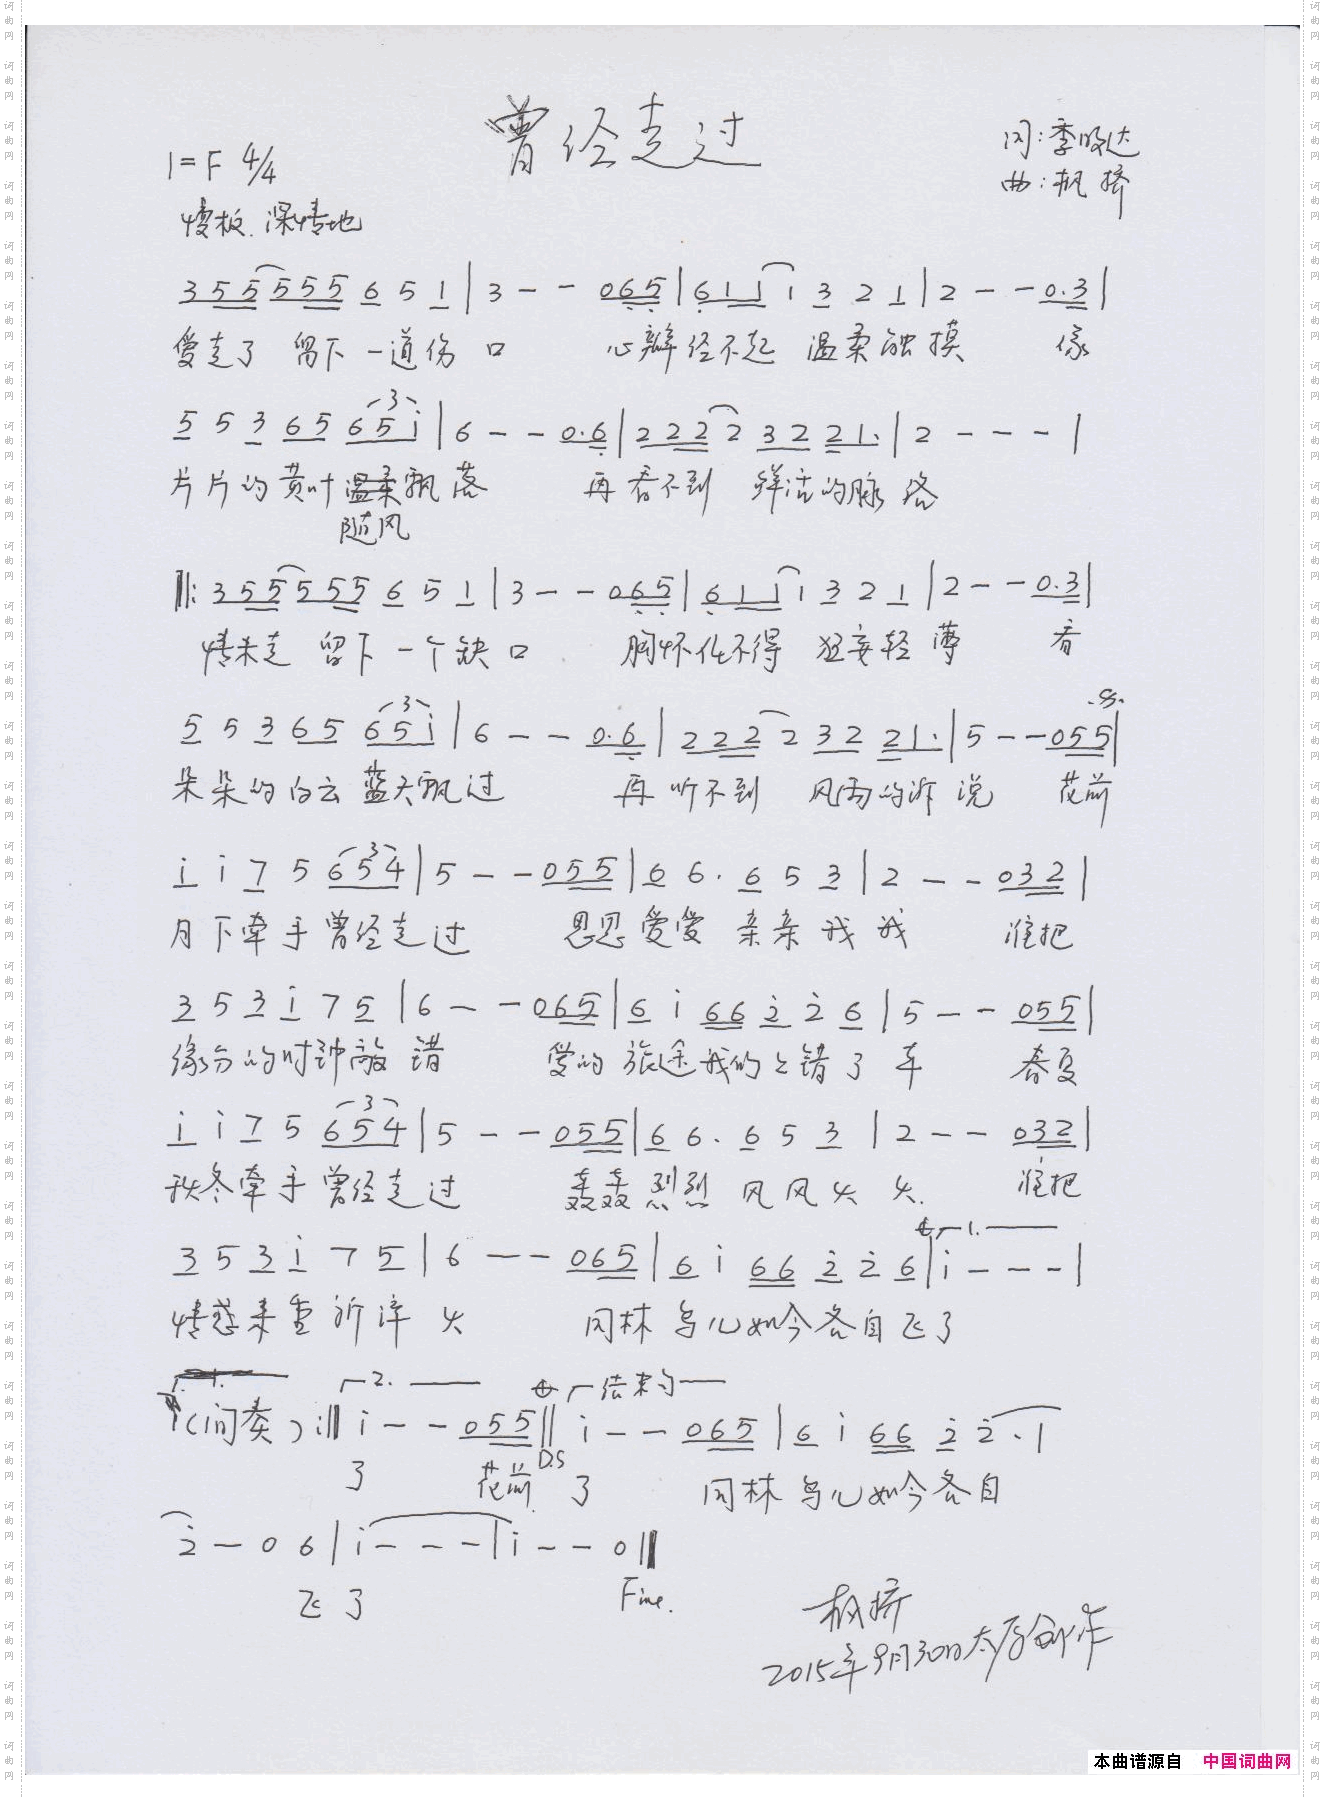 曾经走过
1=F 4/4
词:季明达
曲:枫桥
慢板.深情地
3 5 5 5 5 5 6 5 1 | 3 - - 0 6 5 | 6 1 1 1 3 2 1 | 2 - - 0.3 |
爱走了 留下一道伤口 心瓣经不起 温柔触摸 像
5 5 3 6 5 6 5 i | 6 - - 0.6 | 2 2 2 2 3 2 2 1. | 2 - - - |
片片的黄叶温柔飘落 再看不到 鲜活的脉络
随风
‖: 3 5 5 5 5 5 6 5 1 | 3 - - 0 6 5 | 6 1 1 1 3 2 1 | 2 - - 0.3 |
情未走 留下一个缺口 胸怀化不得 狂妄轻薄 看
5 5 3 6 5 6 5 i | 6 - - 0.6 | 2 2 2 2 3 2 2 1. | 5 - - 0 5 5 |
朵朵的白云蓝天飘过 再听不到 风雨的诉说 花前
i i 7 5 6 5 4 | 5 - - 0 5 5 | 6 6. 6 5 3 | 2 - - 0 3 2 |
月下牵手曾经走过 恩恩爱爱 亲亲我我 谁把
3 5 3 i 7 5 | 6 - - 0 6 5 | 6 i 6 6 2 2 6 | 5 - - 0 5 5 |
缘分的时钟敲错 爱的旅途我的上错了车 春夏
i i 7 5 6 5 4 | 5 - - 0 5 5 | 6 6. 6 5 3 | 2 - - 0 3 2 |
秋冬牵手曾经走过 轰轰烈烈 风风火火. 谁把
1.
3 5 3 i 7 5 | 6 - - 0 6 5 | 6 i 6 6 2 2 6 | i - - - |
情感来重新淬火 同林鸟儿如今各自飞了
2. 结束句
i (间奏) :‖ i - - 0 5 5 ‖ i - - 0 6 5 | 6 i 6 6 2 2. |
D.S
了 花前 了 同林鸟儿如今各自
2 - 0 6 | i - - - | i - - 0 ‖
飞了 Fine.
枫桥
2015年9月30日太原创作
本曲谱源自 中国词曲网